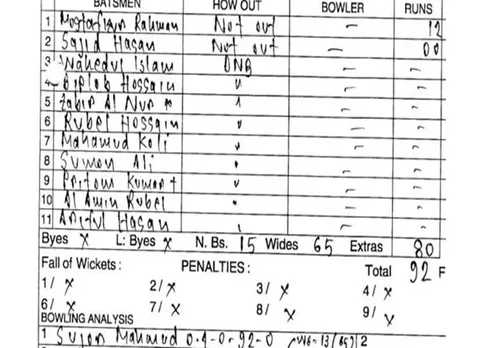 BATSMEN HOW OUT BOWLER RUNS
1 Mostafizur Rahman Not out — 12
2 Sajid Hasan Not out — 00
3 Nahedul Islam DNB — —
4 Biplob Hossain " — —
5 Zabir Al Nur * — —
6 Rubel Hossain " — —
7 Mahamud Koli " — —
8 Sumon Ali " — —
9 Pritom Kumar + " — —
10 Al Amin Rubel " — —
11 Ariful Hasan — —
Byes x L: Byes x N. Bs. 15 Wides 65 Extras 80
Fall of Wickets : PENALTIES: Total 92 F
1/ x 2/ x 3/ x 4/ x
6/ x 7/ x 8/ x 9/ x
BOWLING ANALYSIS
1 Sujon Mahmud 0.4-0-92-0